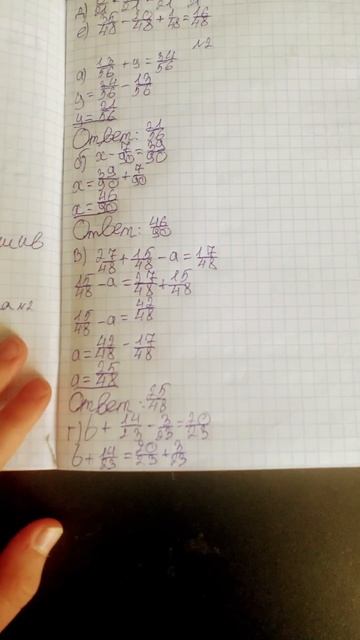 е) 35/48 - 20/48 + 1/48 = 16/48
№2
а) 13/56 + y = 34/56
y = 34/56 - 13/56
y = 21/56
Ответ: 21/56
б) x - 7/90 = 39/90
x = 39/90 + 7/90
x = 46/90
Ответ: 46/90
в) 27/48 + 15/48 - a = 17/48
15/48 - a = 27/48 + 15/48
15/48 - a = 42/48
a = 42/48 - 17/48
a = 25/48
Ответ: 25/48
г) b + 14/23 - 3/23 = 20/23
b + 14/23 = 20/23 + 3/23